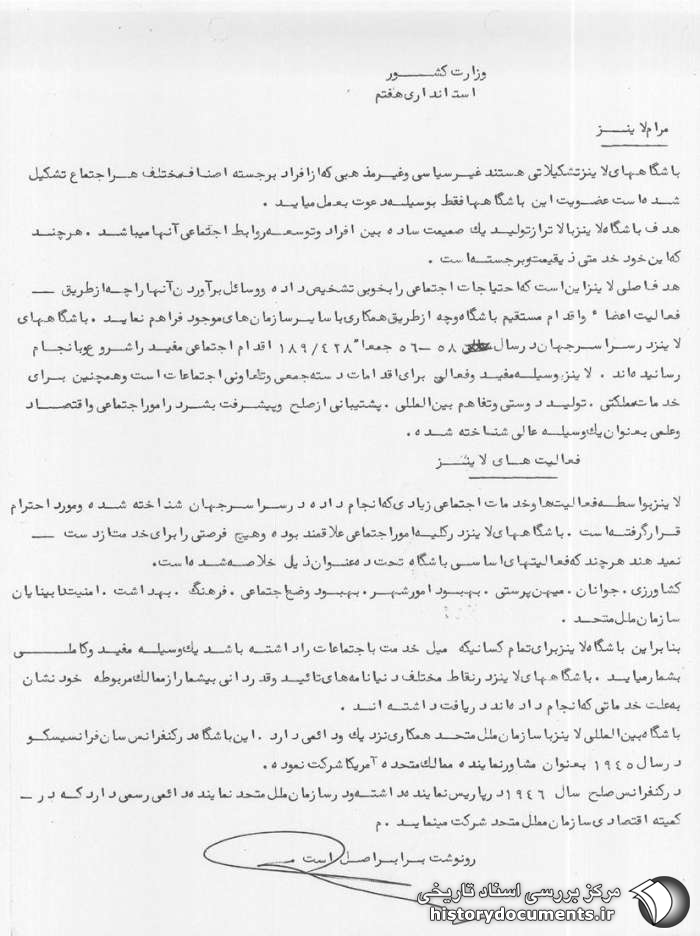 وزارت کشـــور
استانداری هفتم
مرام لاینـــز
باشگاههای لاینز تشکیلاتی هستند غیر سیاسی و غیر مذهبی که از افراد برجسته اصناف مختلف هر اجتماع تشکیل
شده است عضویت این باشگاهها فقط بوسیله دعوت بعمل میاید .
هدف باشگاه لاینز بالاتر از تولید یك صمیمت ساده بین افراد و توسعه روابط اجتماعی آنها میباشد . هرچند
که این خود خدمتی ذیقیمت و برجسته است .
هدف اصلی لاینز این است که احتیاجات اجتماعی را بخوبی تشخیص داده و وسائل برآوردن آنها را چه از طریق —
فعالیت اعضاء و اقدام مستقیم باشگاه و چه از طریق همکاری با سایر سازمان های موجود فراهم نماید . باشگاههای
لاینز در سراسر جهان در سال ۵۸ -۵۶ جمعا" ۱۸۹/۴۲۸ اقدام اجتماعی مفید را شروع و بانجام
رسانیده اند . لاینز وسیله مفید و فعالی برای اقدامات دسته جمعی و تعاونی اجتماعات است و همچنین برای
خدمات مملکتی . تولید دوستی و تفاهم بین المللی . پشتیبانی از صلح و پیشرفت بشر در امور اجتماعی و اقتصاد
و علمی بعنوان یك وسیله عالی شناخته شده .
فعالیت های لاینـــز
لاینز بواسطه فعالیتها و خدمات اجتماعی زیادی که انجام داده در سراسر جهان شناخته شده و مورد احترام
قرار گرفته است . باشگاههای لاینز در کلیه امور اجتماعی علاقمند بوده و هیچ فرصتی را برای خدمت از دست —
نمیدهند هرچند که فعالیتهای اساسی باشگاه تحت ده عنوان ذیل خلاصه شده است.
کشاورزی . جوانان . میهن پرستی . بهبود امور شهر . بهبود وضع اجتماعی . فرهنگ . بهداشت . امنیت نابینایان
سازمان ملل متحد .
بنابراین باشگاه لاینز برای تمام کسانیکه میل خدمت با جتماعات را داشته باشد یك وسیله مفید و کاملی
بشمار میاید . باشگاههای لاینز در نقاط مختلف دنیا نامه های تائید و قدردانی بیشمار از ممالك مربوطه خود نشان
به علت خدماتی که انجام داده اند دریافت داشته اند .
باشگاه بین المللی لاینز با سازمان ملل متحد همکاری نزدیك و دائمی دارد . این باشگاه در کنفرانس سان فرانسیسکو
در سال ۱۹۴۵ بعنوان مشاور نماینده ممالك متحده آمریکا شرکت نموده .
در کنفرانس صلح سال ۱۹۴۶ در پاریس نماینده داشته و در سازمان ملل متحد نماینده دائمی رسمی دارد که در —
کمیته اقتصادی سازمان مطل متحد شرکت مینماید . م
رونوشت برابر اصل است
مرکز بررسی اسناد تاریخی
historydocuments.ir